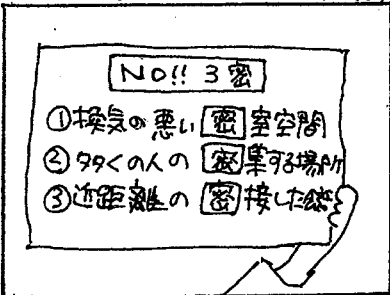 NO!! 3密
①換気の悪い密室空間
②多くの人の密集する場所
③近距離の密接した